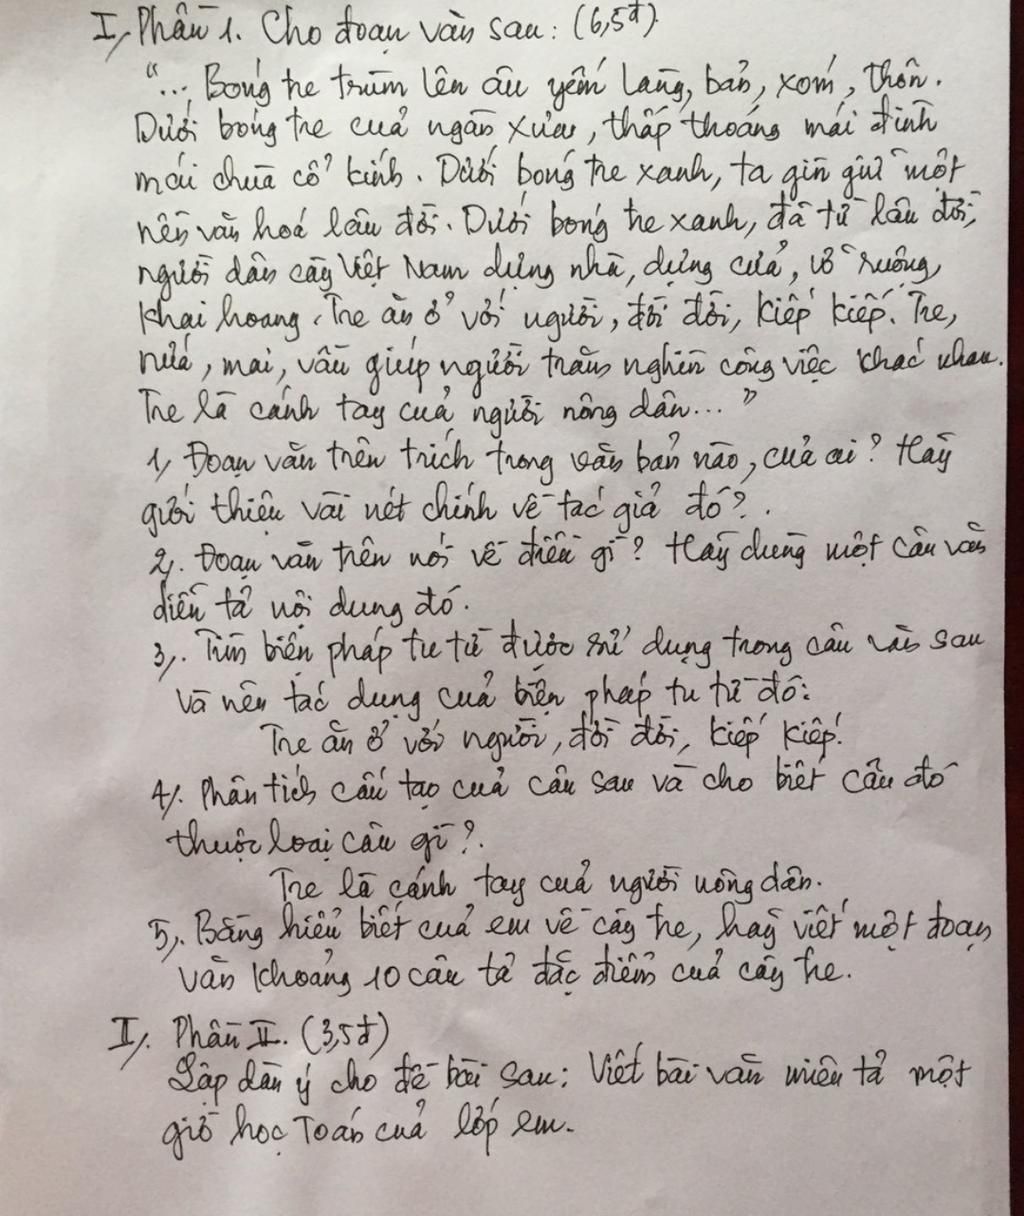 I, Phần 1. Cho đoạn văn sau: (6,5đ)
"... Bóng tre trùm lên âu yếm làng, bản, xóm, thôn.
Dưới bóng tre của ngàn xưa, thấp thoáng mái đình
mái chùa cổ kính. Dưới bóng tre xanh, ta gìn giữ một
nền văn hoá lâu đời. Dưới bóng tre xanh, đã từ lâu đời,
người dân cày Việt Nam dựng nhà, dựng cửa, vỡ ruộng,
khai hoang. Tre ăn ở với người, đời đời, kiếp kiếp. Tre,
nứa, mai, vầu giúp người trăm nghìn công việc khác nhau.
Tre là cánh tay của người nông dân... "
1, Đoạn văn trên trích trong văn bản nào, của ai? Hãy
giới thiệu vài nét chính về tác giả đó?.
2,. Đoạn văn trên nói về điều gì? Hãy dùng một câu văn
diễn tả nội dung đó.
3,. Tìm biện pháp tu từ được sử dụng trong câu văn sau
và nêu tác dụng của biện pháp tu từ đó:
Tre ăn ở với người, đời đời, kiếp kiếp.
4,. Phân tích cấu tạo của câu sau và cho biết câu đó
thuộc loại câu gì?.
Tre là cánh tay của người nông dân.
5,. Bằng hiểu biết của em về cây tre, hãy viết một đoạn
văn khoảng 10 câu tả đặc điểm của cây tre.
II,. Phần II. (3,5đ)
Lập dàn ý cho đề bài sau: Viết bài văn miêu tả một
giờ học Toán của lớp em.